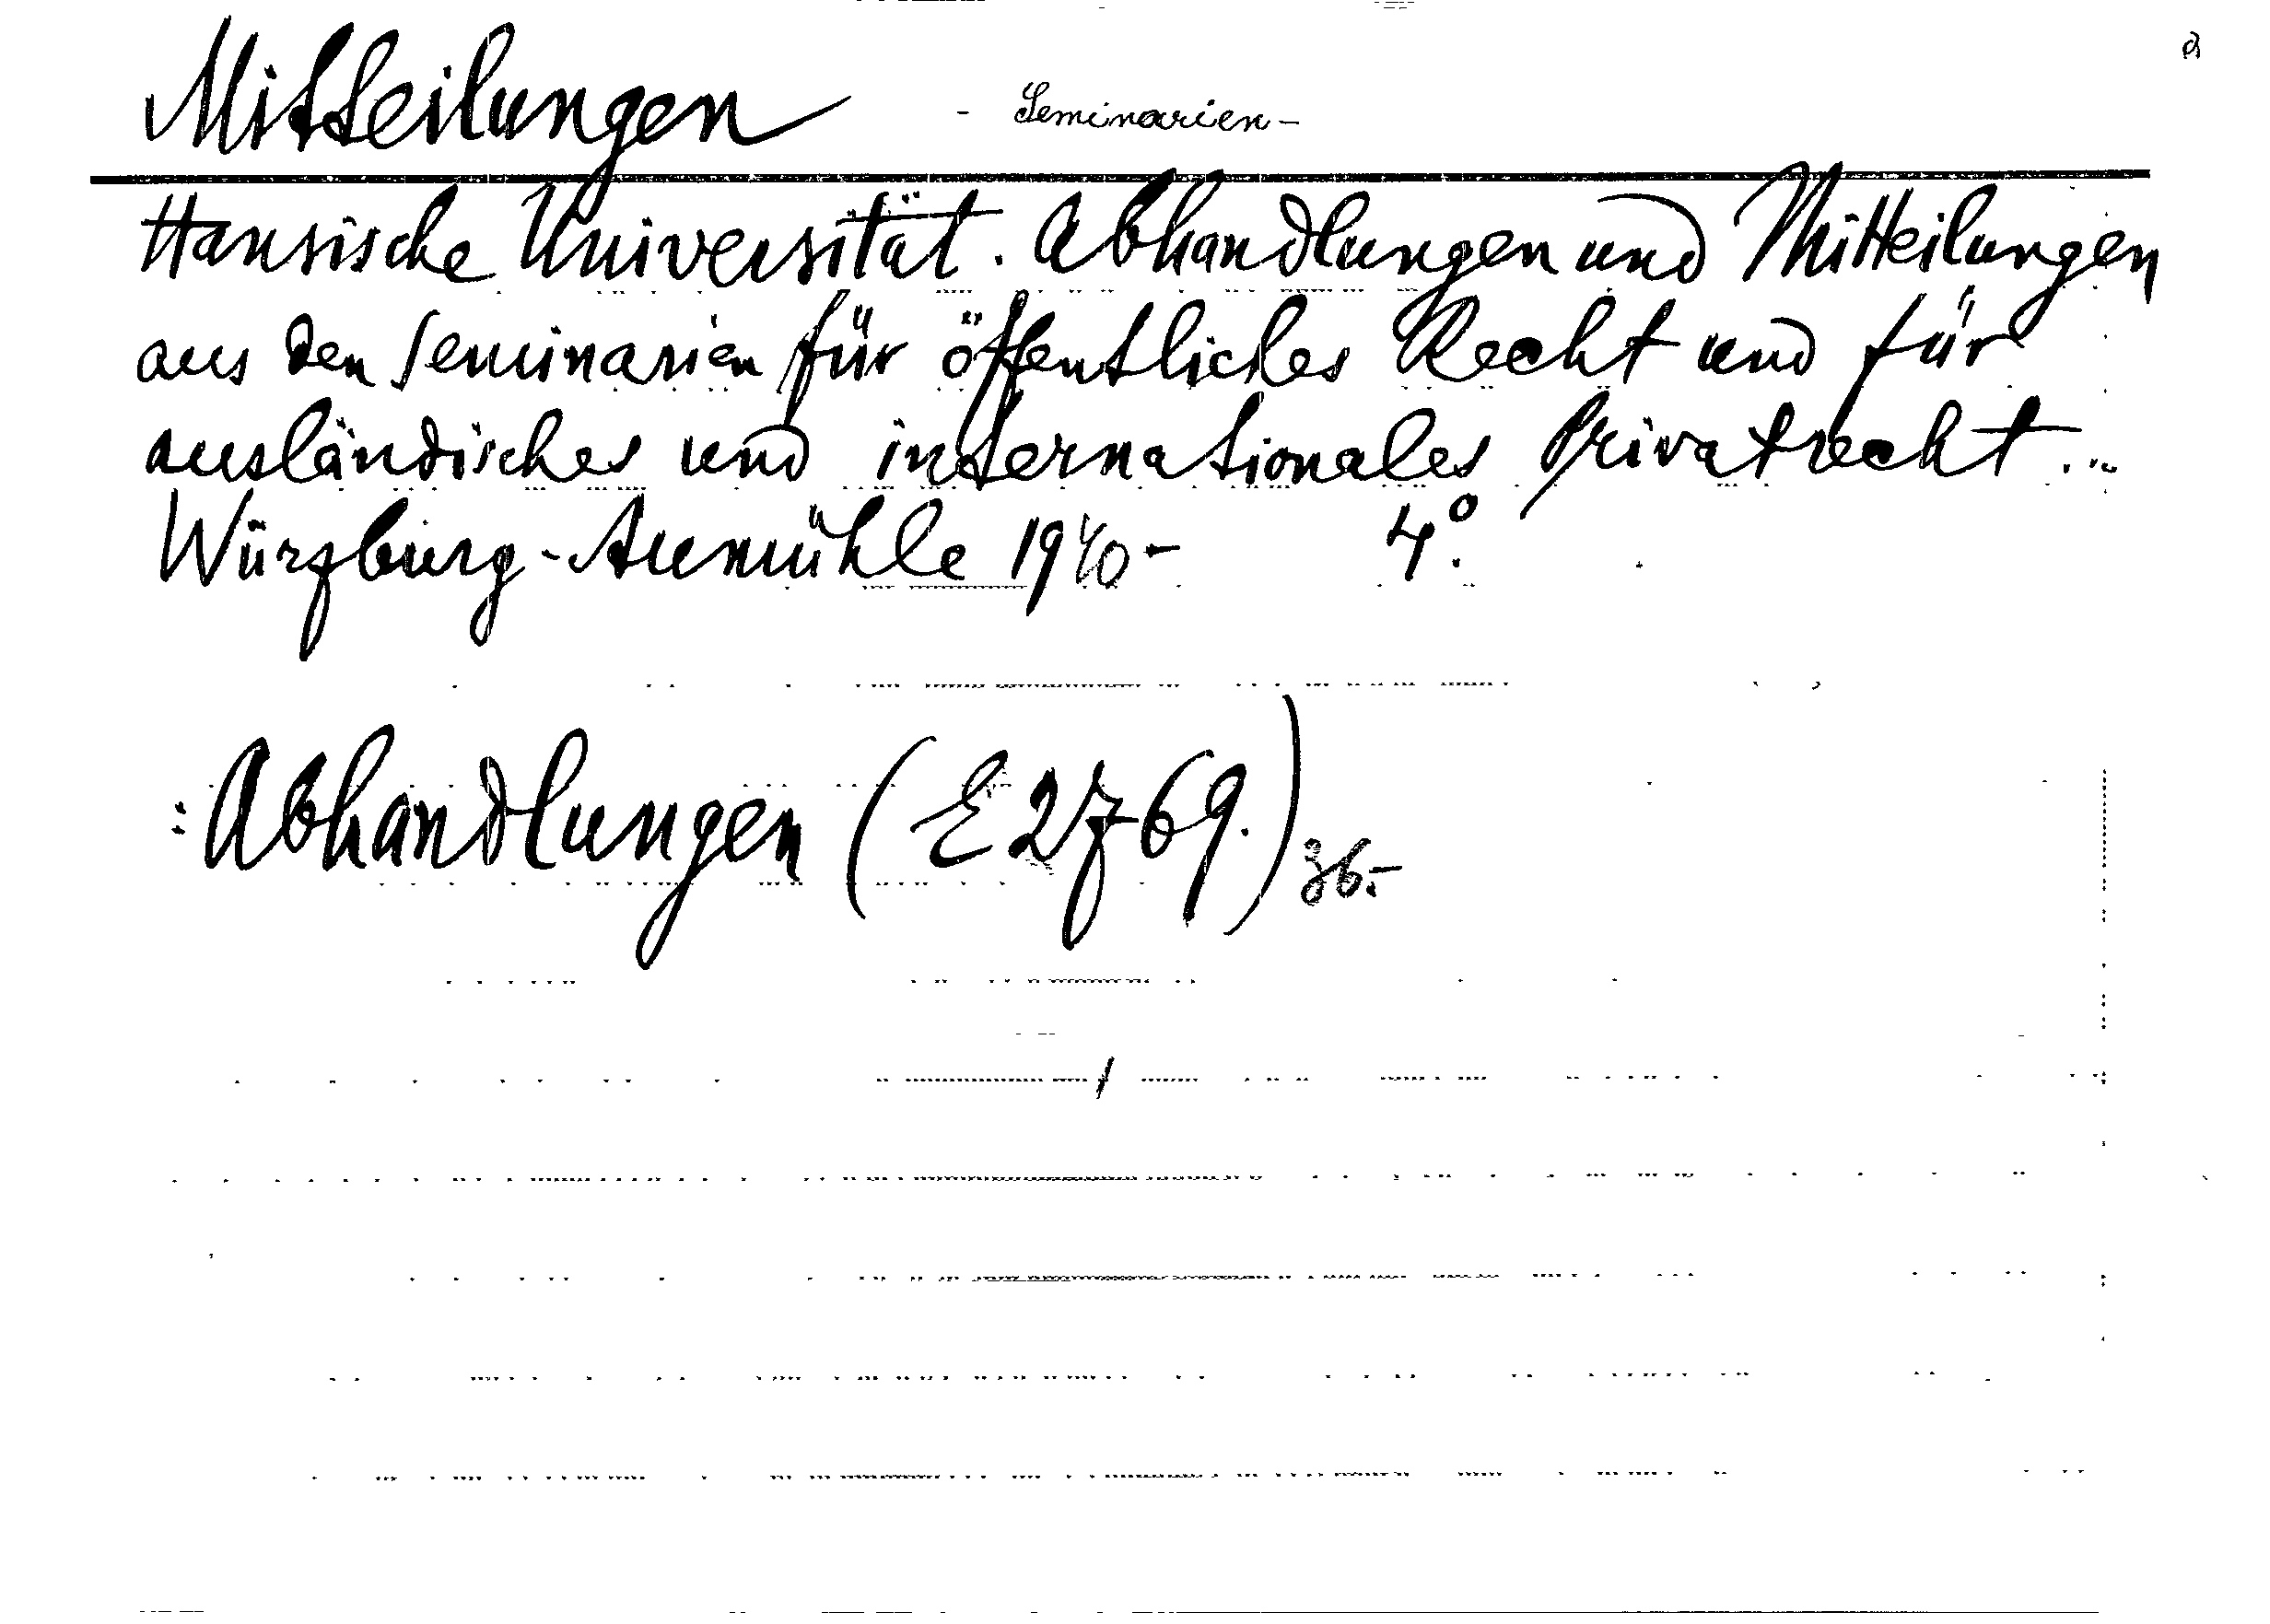 Mitteilungen - Seminarien -
Hansische Universität. Abhandlungen und Mitteilungen
aus den Seminarien für öffentliches Recht und für
ausländisches und internationales Privatrecht ...
Würzburg-Aumühle 1940- 4°.
: Abhandlungen (E 2769.) 36.-